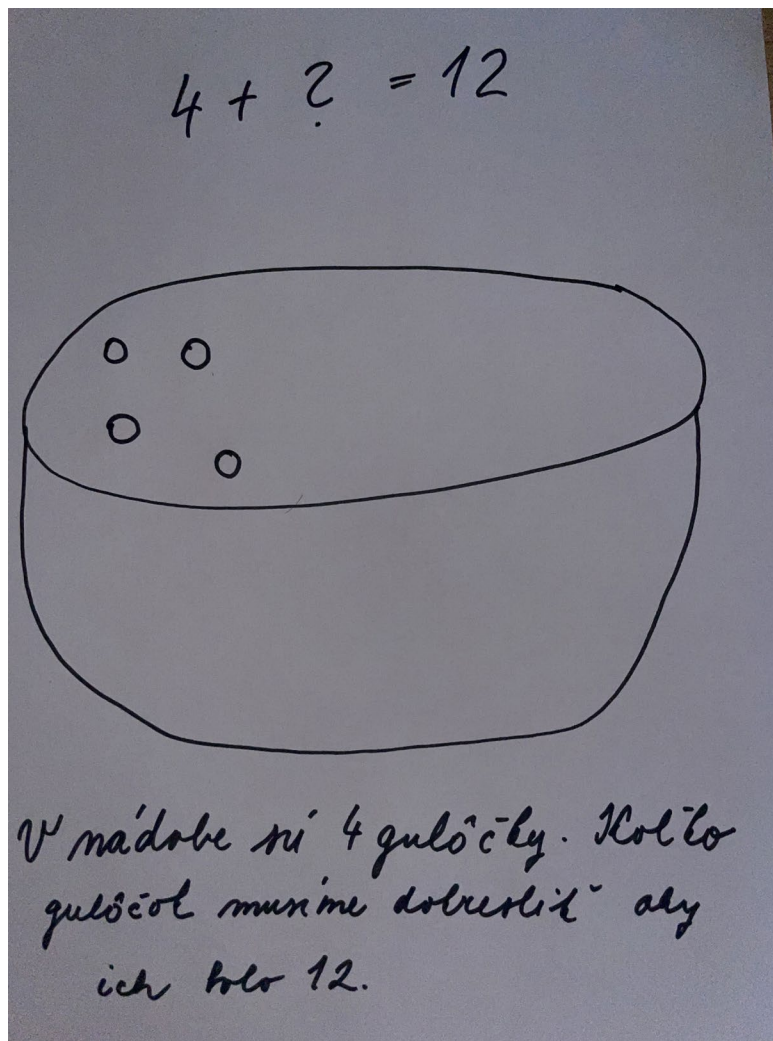 4 + ? = 12
V nádobe sú 4 gulôčky. Koľko
gulôčok musíme dokresliť aby
ich bolo 12.